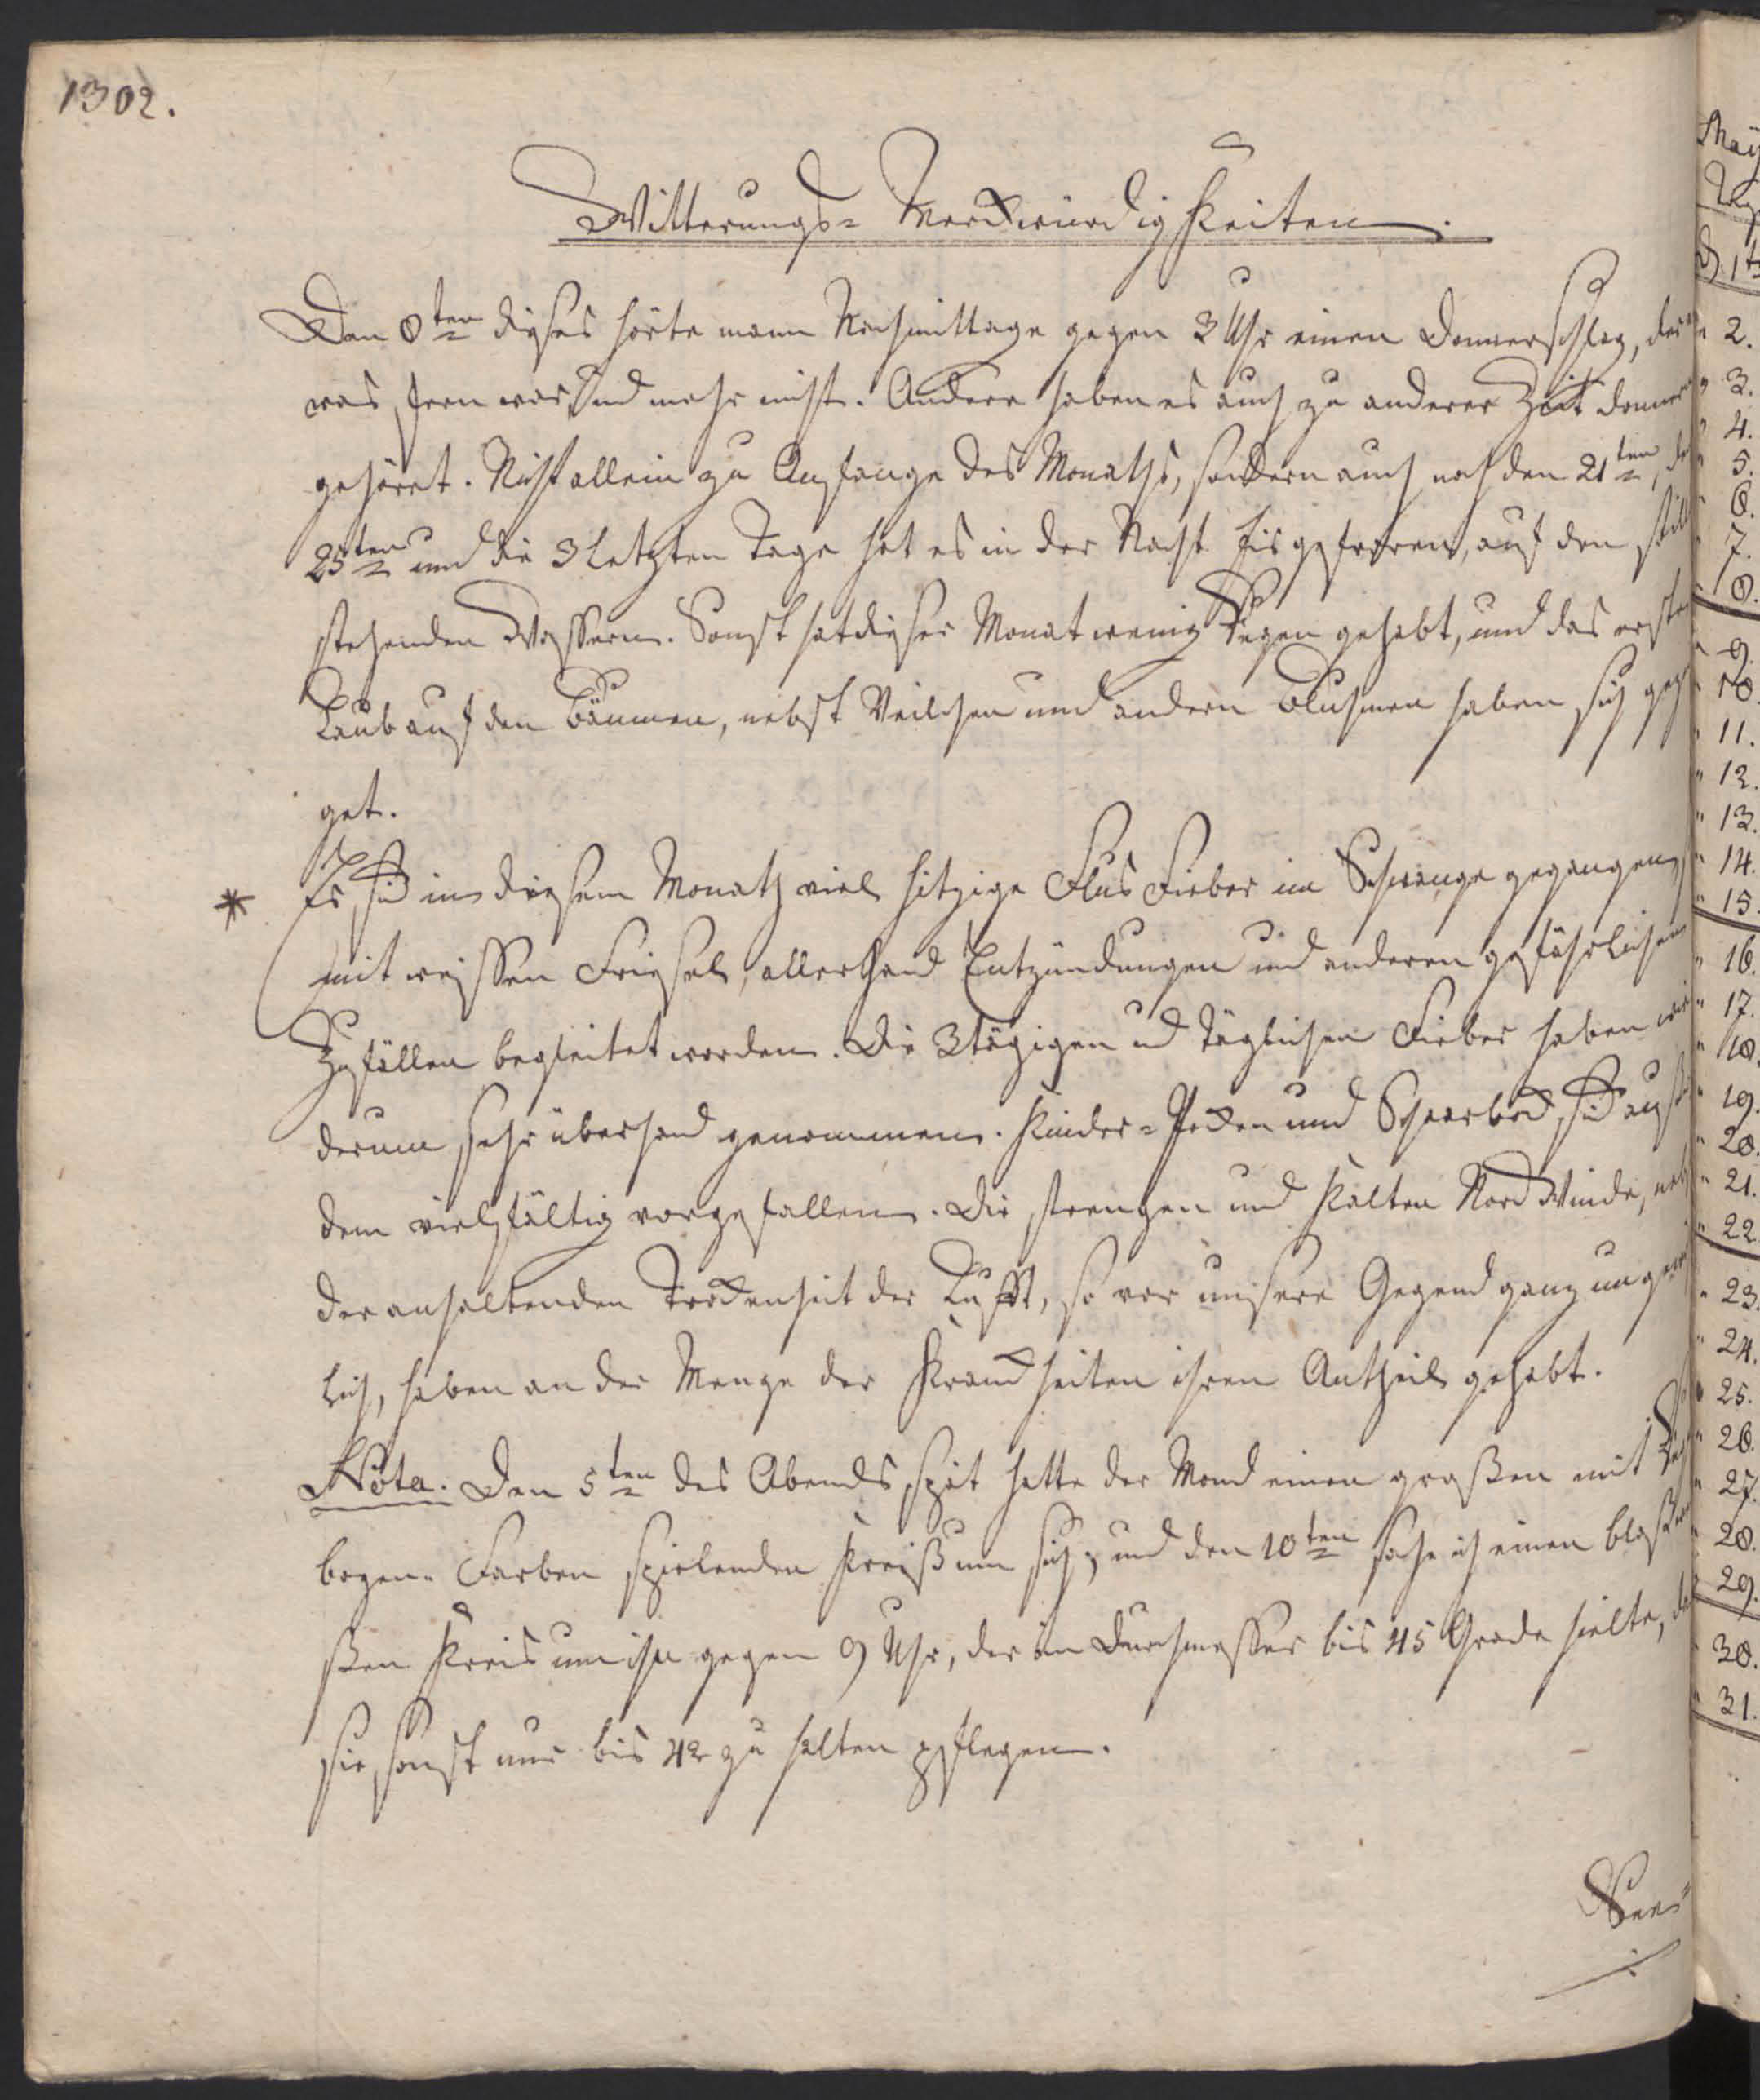 1302.
Witterungs- Merckwürdigkeiten.
Den 8ten dieses hörte mann Nachmittage gegen 3 Uhr einen Donnerschlag, der
was fern war, und mehr nicht. Andere haben es auch zu anderer Zeit donnern
gehöret. Nicht allein zu Anfange des Monaths, sondern auch noch den 21ten, den
25ten und die 3 letzten Tage hat es in der Nacht Eis gefroren, auf den still
stehenden Wassern. Sonst hat dieser Monat wenig Regen gehabt, und das erste
Laub auf den Bäumen, nebst Veilchen und andern Bluhmen haben sich gezei
get.
* Es sind in diesem Monath viel hitzige Flus Fieber im Schwange gegangen,
mit weissen Friesel, allerhand Entzündungen und anderen gefährlichen
Zufällen begleitet worden. Die 3tägigen und täglichen Fieber haben wie
derum sehr überhand genommen. Kinder-Pocken und Scharbock sind ausser
dem vielfältig vorgefallen. Die strengen und kalten Nord Winde, nebst
der anhaltenden Trockenheit der Lufft, so vor unsere Gegend ganz ungewöhn
lich, haben an der Menge der Kranckheiten ihren Antheil gehabt.
Nota. Den 5ten des Abends spät hatte der Mond einen großen mit Regen
bogen- Farben spielenden Kreiß um sich; und den 10ten sahe ich einen blaß
ßen Kreis um ihn gegen 9 Uhr, der im Durchmesser bis 45 Grade hielte, da
sie sonst nur bis 42 zu halten pflegen.
May
Tage
1t
2.
3.
4.
5.
6.
7.
8.
9.
10.
11.
12.
13.
14.
15.
16.
17.
18.
19.
20.
21.
22.
23.
24.
25.
26.
27.
28.
29.
30.
31.